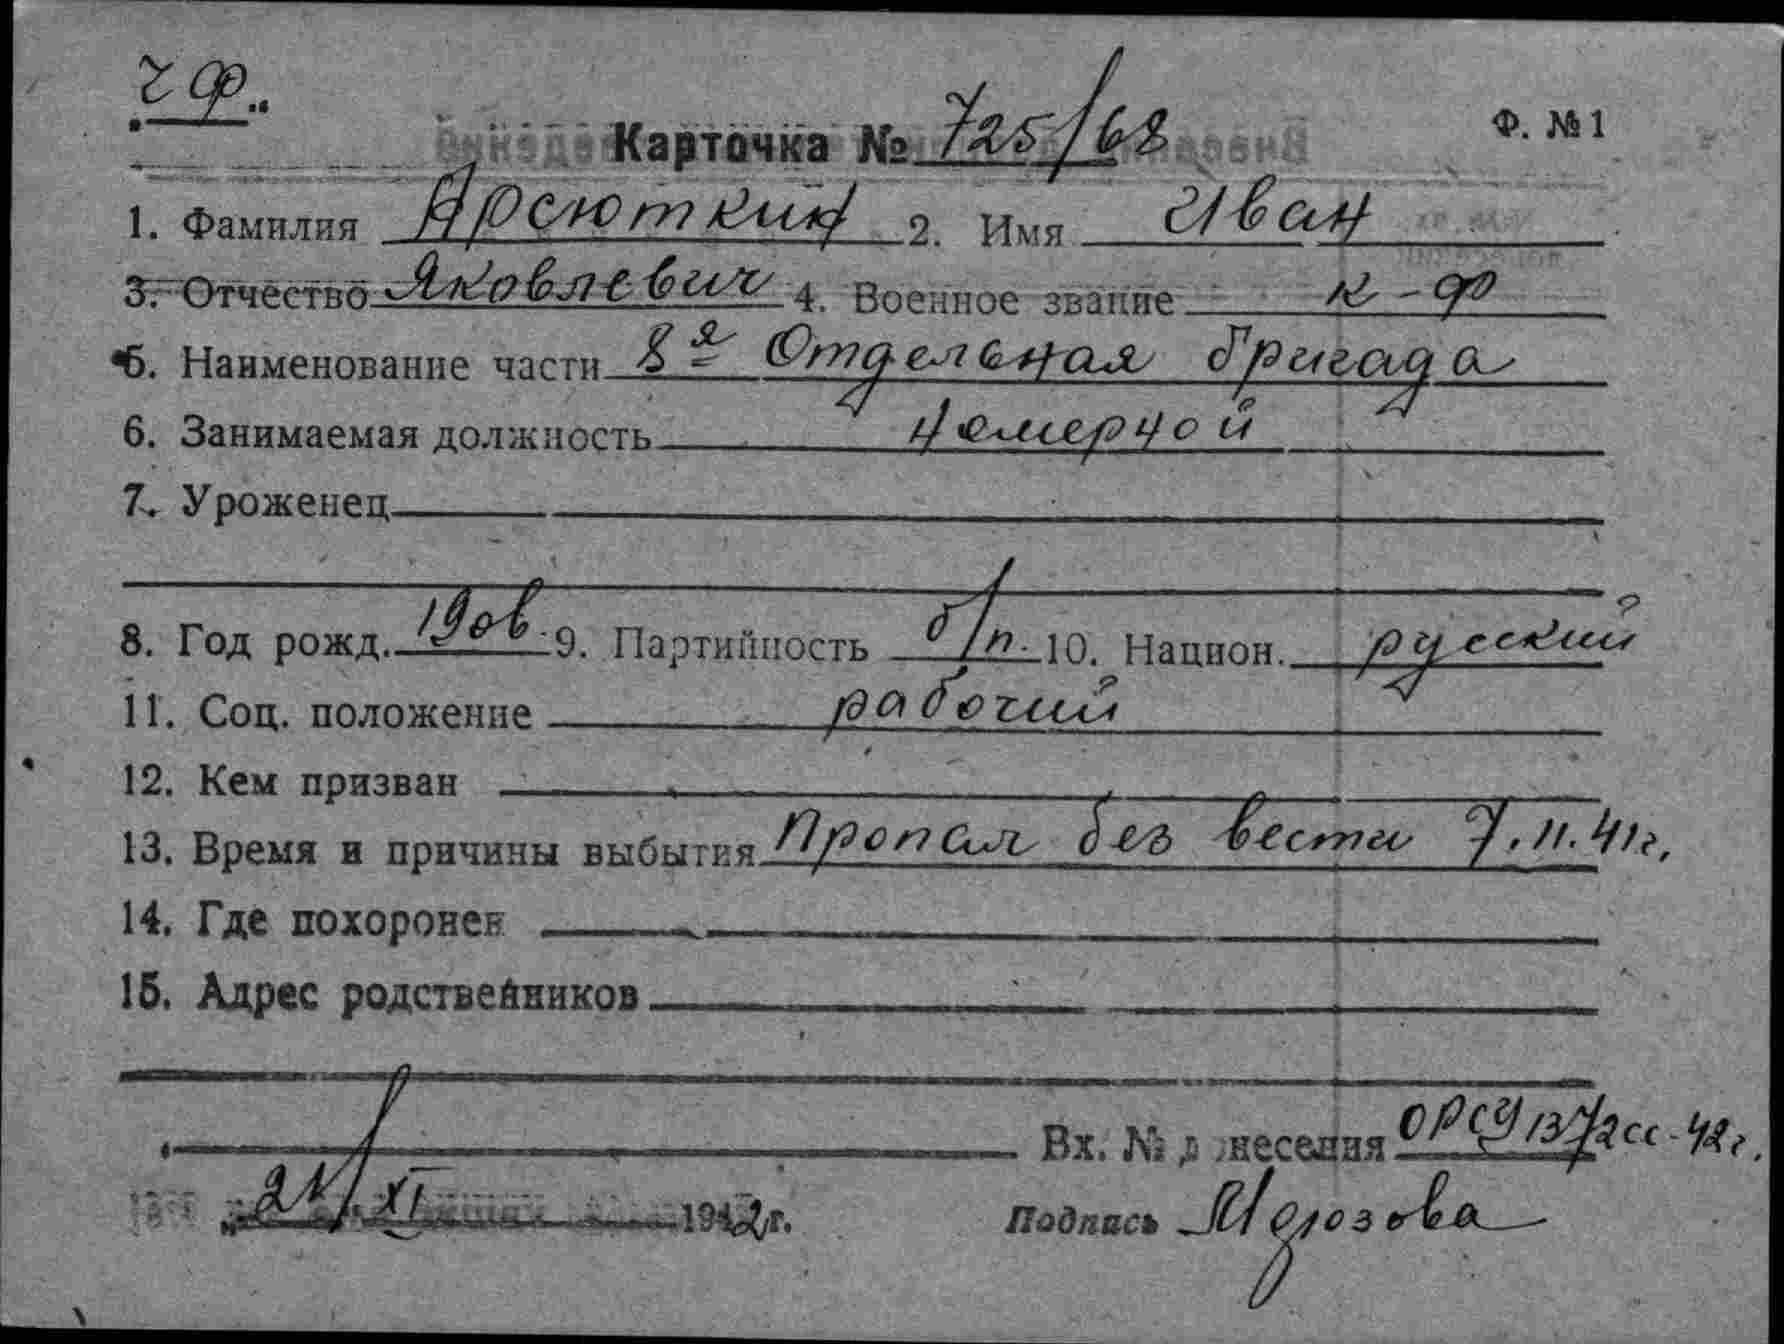 ч ф.
Карточка № 725/68
Ф. № 1
1. Фамилия Арсюткин 2. Имя Иван
3. Отчество Яковлевич 4. Военное звание к-ф
5. Наименование части 8я Отдельная бригада
6. Занимаемая должность номерной
7. Уроженец
8. Год рожд. 1906 9. Партийность б/п. 10. Национ. русский
11. Соц. положение рабочий
12. Кем призван
13. Время и причины выбытия Пропал без вести 7.11.41г.
14. Где похоронен
15. Адрес родственников
Вх. № донесения ОРСУ 1372сс-42г.
21/XI 1942г. Подпись Морозова